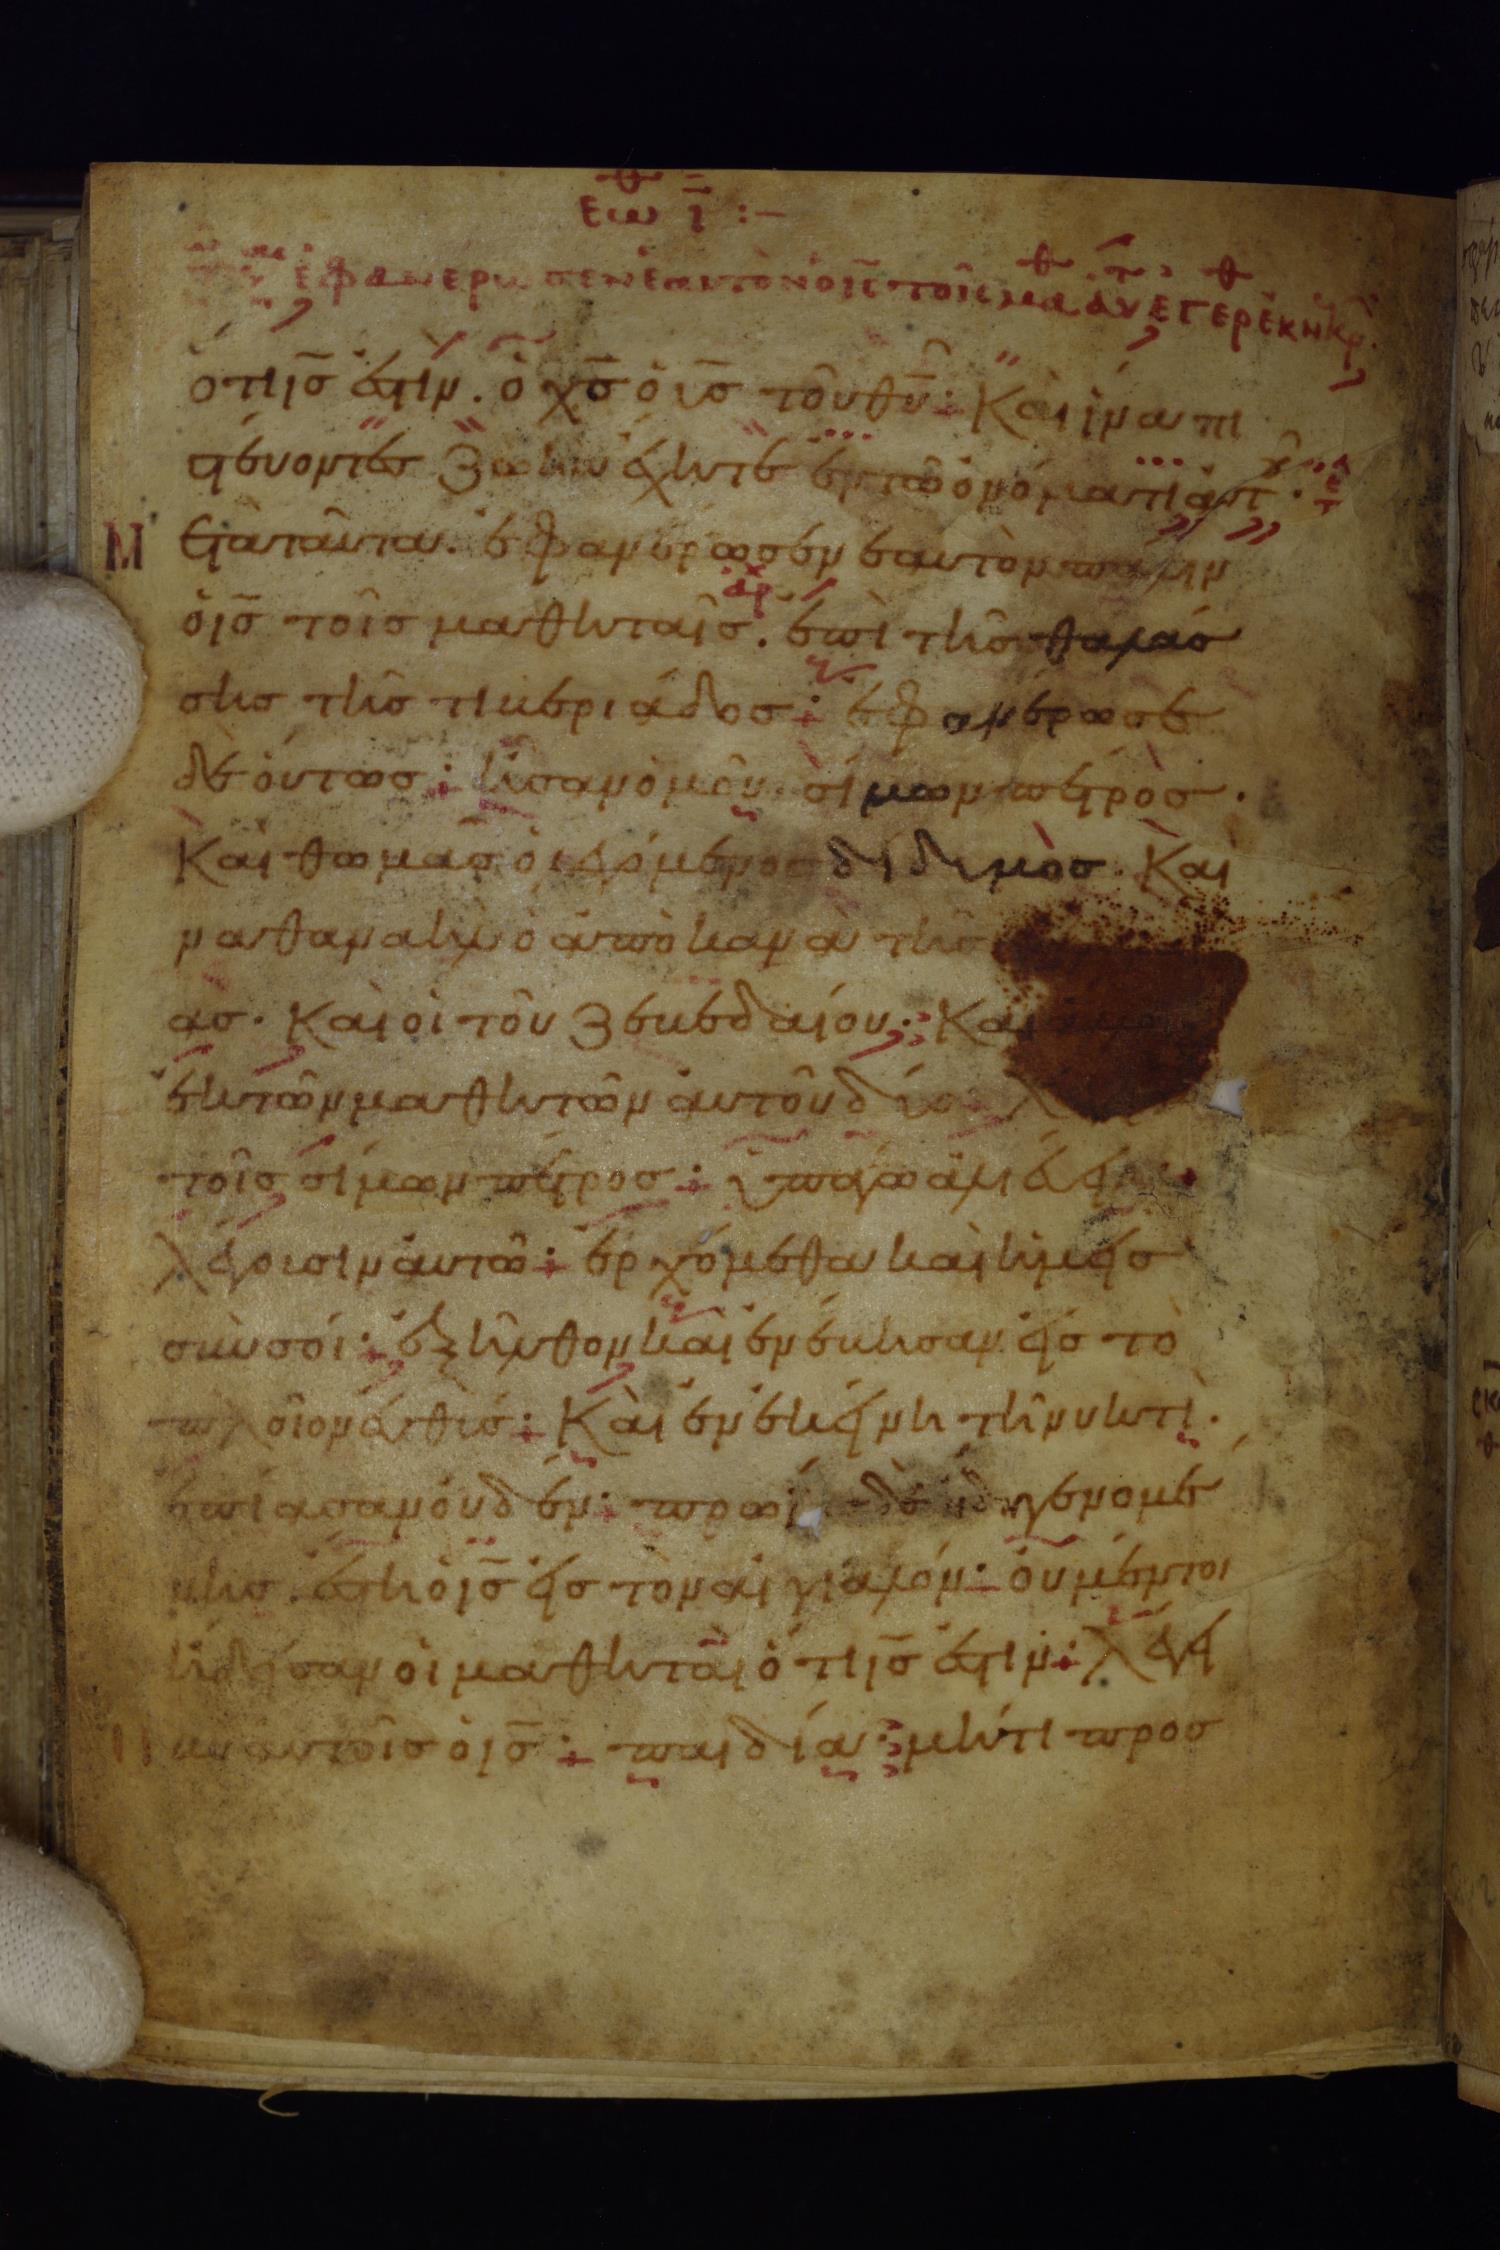 εωθ ῑ :–
ἐφανερωσεν ἑαυτὸν ὁ ις̅ τοῖς μαθ ἀυτ ἐγερθ ἐκ νκρ.
ὅτι ις̅ ἐστιν. ὁ χς̅ ὁ υς̅ τοῦ θυ̅ : Καὶ ἵνα πι
στέυοντες ζωὴν ἔχητε ἐν τῶ ὀνόματι ἀυτοῦ.
Μ ετὰ ταῦτα. ἐφανέρωσεν ἑαυτὸν πάλιν
ὁ ις̅ τοῖς μαθηταῖς. ἐπὶ τῆς θαλάσ
σης τῆς τιβεριάδος : ἐφανέρωσε
δὲ όυτως : ἦσαν ὁμοῦ σίμων πέτρὸς.
Καὶ θωμᾶς ὁ λεγόμενος δίδυμὸς. Καὶ
ναθαναὴλ ὁ ἀπὸ κανὰ τῆς
ας. Καὶ οἱ τοῦ ζεβεδαίου : Καὶ
ἐκ τῶν μαθητῶν ἀυτοῦ δύο
τοῖς σίμων πέτρος : ὑπάγω ἁλιέυειν
λέγουσιν ἀυτῶ : ἐρχόμεθα καὶ ἡμεῖς
σὺν σοί : ἐξῆλθον καὶ ἐνέβησαν εἰς τὸ
πλοῖον ἐυθύς : Καὶ ἐν ἐκείνη τῆ νυκτὶ.
ἐπίασαν ὀυδέν : πρωί δὲ ἤδη γενομέ
νης. ἔστη ὁ ις̅ εἰς τὸν ἀιγιαλόν : ὀυ μέντοι
ἤδεισαν οἱ μαθηταὶ ὅτι ις̅ ἐστιν : λέγει
ουν ἀυτοῖς ὁ ις̅ : παιδία : μήτι προσ